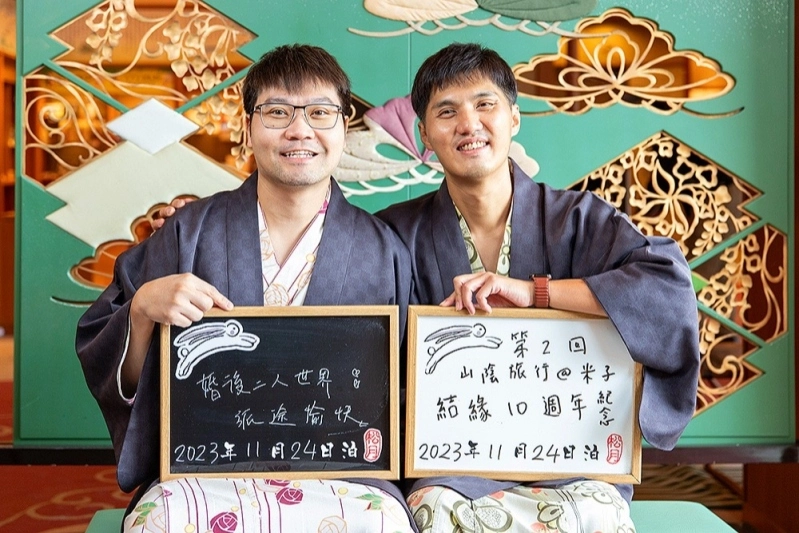 婚後二人世界の
旅途愉快
2023年11月24日泊
松月
第2回
山陰旅行@米子
結緣10週年紀念
2023年11月24日泊
松月